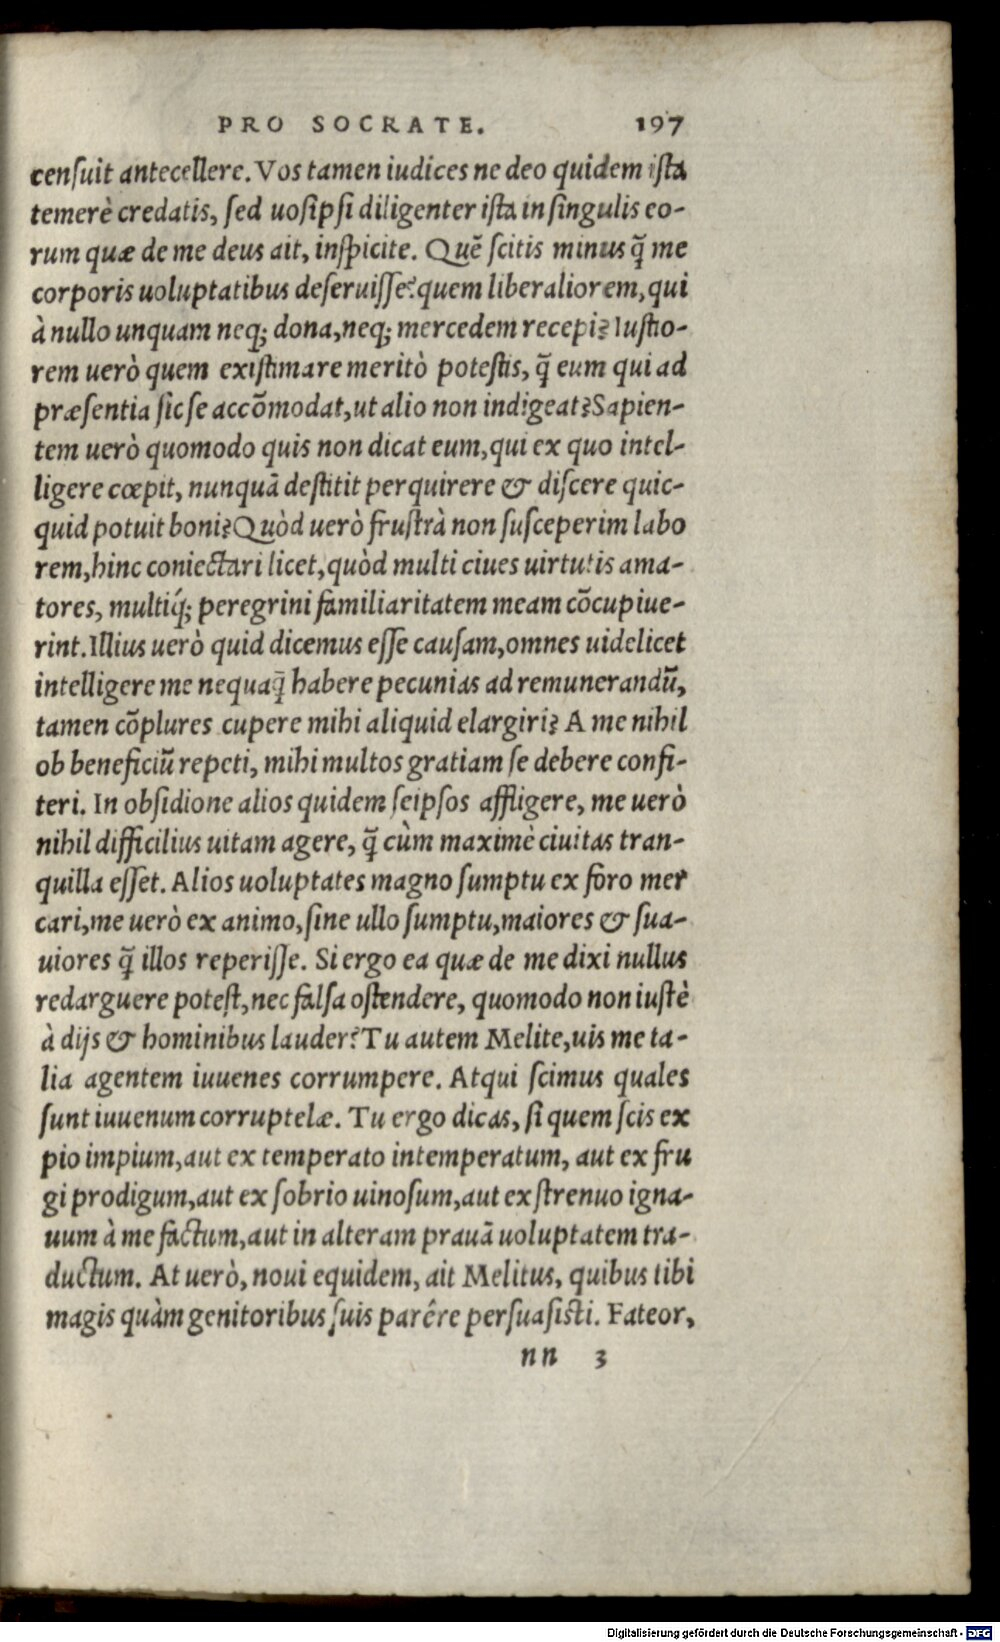 PRO SOCRATE. 197
cenſuit antecellere. Vos tamen iudices ne deo quidem iſta
temerè credatis, ſed uoſipſi diligenter iſta in ſingulis eo-
rum quæ de me deus ait, inſpicite. Quē ſcitis minus q̃ me
corporis uoluptatibus deſeruiſſe? quem liberaliorem, qui
à nullo unquam neq; dona, neq; mercedem recepi? Iuſtio-
rem uerò quem exiſtimare meritò poteſtis, q̃ eum qui ad
præſentia ſic ſe accōmodat, ut alio non indigeat? Sapien-
tem uerò quomodo quis non dicat eum, qui ex quo intel-
ligere cœpit, nunquā deſtitit perquirere & diſcere quic-
quid potuit boni? Quòd uerò fruſtrà non ſuſceperim labo
rem, hinc coniectari licet, quòd multi ciues uirtutis ama-
tores, multiq́; peregrini familiaritatem meam cōcupiue-
rint. Illius uerò quid dicemus eſſe cauſam, omnes uidelicet
intelligere me nequaq̃ habere pecunias ad remunerandũ,
tamen cōplures cupere mihi aliquid elargiri? A me nihil
ob beneficiũ repeti, mihi multos gratiam ſe debere confi-
teri. In obſidione alios quidem ſeipſos affligere, me uerò
nihil difficilius uitam agere, q̃ cùm maximè ciuitas tran-
quilla eſſet. Alios uoluptates magno ſumptu ex foro mer
cari, me uerò ex animo, ſine ullo ſumptu, maiores & ſua-
uiores q̃ illos reperiſſe. Si ergo ea quæ de me dixi nullus
redarguere poteſt, nec falſa oſtendere, quomodo non iuſtè
à dijs & hominibus lauder? Tu autem Melite, uis me ta-
lia agentem iuuenes corrumpere. Atqui ſcimus quales
ſunt iuuenum corruptelæ. Tu ergo dicas, ſi quem ſcis ex
pio impium, aut ex temperato intemperatum, aut ex fru
gi prodigum, aut ex ſobrio uinoſum, aut ex ſtrenuo igna-
uum à me factum, aut in alteram prauā uoluptatem tra-
ductum. At uerò, noui equidem, ait Melitus, quibus tibi
magis quàm genitoribus ſuis parêre perſuaſisti. Fateor,
nn 3
Digitalisierung gefördert durch die Deutsche Forschungsgemeinschaft - DFG